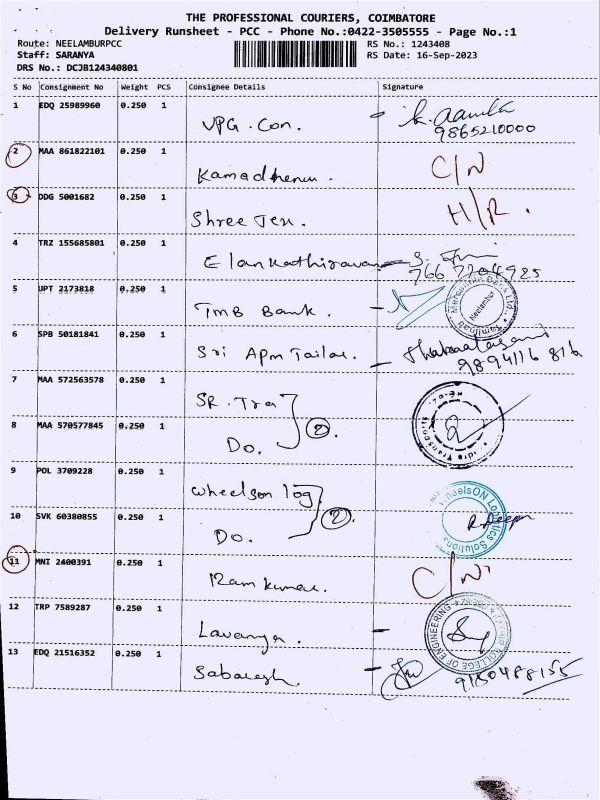 THE PROFESSIONAL COURIERS, COIMBATORE
Delivery Runsheet - PCC - Phone No.:0422-3505555 - Page No.:1
Route: NEELAMBURPCC RS No.: 1243408
Staff: SARANYA RS Date: 16-Sep-2023
DRS No.: DCJB124340801
S No Consignment No Weight PCS Consignee Details Signature
1 EDQ 25989960 0.250 1 VPG. Con.
9865210000
2 MAA 861822101 0.250 1 Kamadhenu. C/N
3 DDG 5001682 0.250 1 Shree Tex. H/R.
4 TRZ 155685801 0.250 1 Elankathiravan
766 7204925
5 UPT 2173818 0.250 1 TMB Bank. Neelambur
6 SPB 50181841 0.250 1 Sri Apm Tailor.
9894116 816
7 MAA 572563578 0.250 1 SR. Tra
8 MAA 570577845 0.250 1 Do. 2.
9 POL 3709228 0.250 1 Wheelson log
10 SVK 60380855 0.250 1 Do. 2. WheelsON Logistics Solutions
11 MNI 2400391 0.250 1 Ram kumar. C/N
12 TRP 7589287 0.250 1 Lavanya. COLLEGE OF ENGINEERING
13 EDQ 21516352 0.250 1 Sabaresh. 9150488155